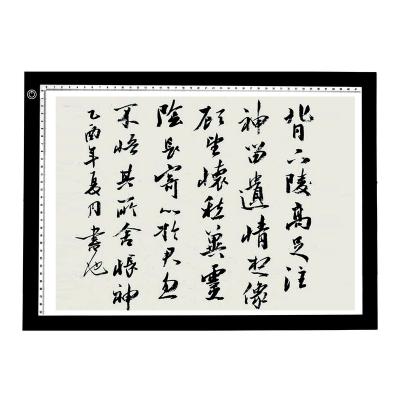 背下陵高足往
神留遺情想像
顧望懷愁冀靈
陰長寄心於君忽
不悟其所舍悵神
乙酉年夏月書